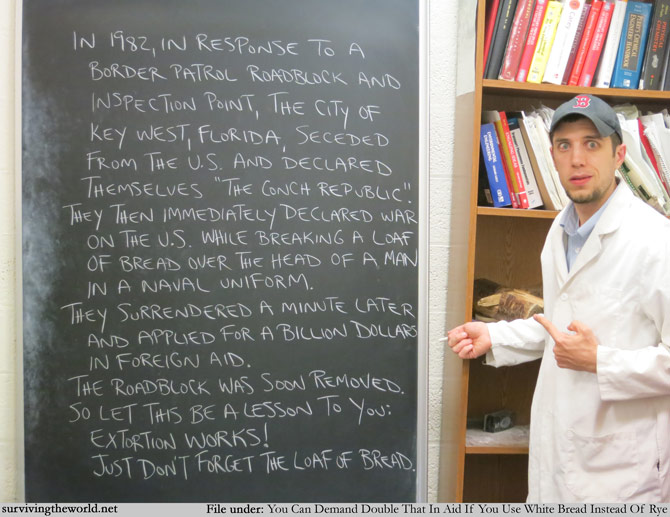 IN 1982, IN RESPONSE TO A
BORDER PATROL ROADBLOCK AND
INSPECTION POINT, THE CITY OF
KEY WEST, FLORIDA, SECEDED
FROM THE U.S. AND DECLARED
THEMSELVES "THE CONCH REPUBLIC".
THEY THEN IMMEDIATELY DECLARED WAR
ON THE U.S. WHILE BREAKING A LOAF
OF BREAD OVER THE HEAD OF A MAN
IN A NAVAL UNIFORM.
THEY SURRENDERED A MINUTE LATER
AND APPLIED FOR A BILLION DOLLARS
IN FOREIGN AID.
THE ROADBLOCK WAS SOON REMOVED.
SO LET THIS BE A LESSON TO YOU:
EXTORTION WORKS!
JUST DON'T FORGET THE LOAF OF BREAD.
B
survivingtheworld.net File under: You Can Demand Double That In Aid If You Use White Bread Instead Of Rye